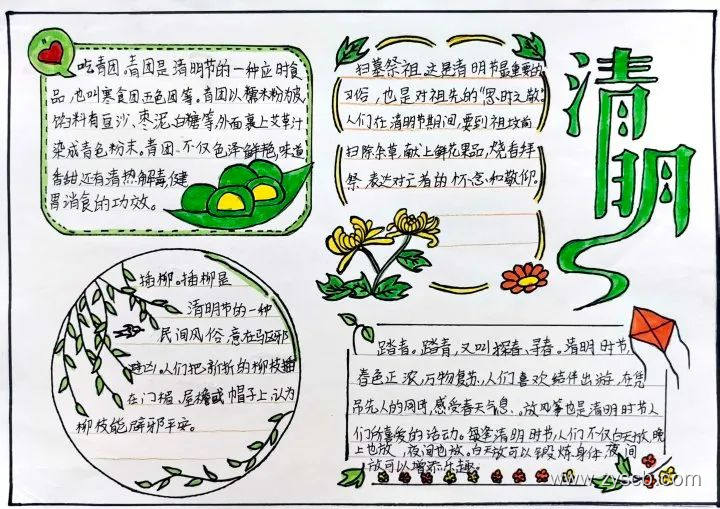 吃青团。青团是清明节的一种应时食
品,也叫寒食团五色团等。青团以糯米粉为皮
馅料有豆沙、枣泥、白糖等,外面裹上艾草汁
染成青色粉末。青团不仅色泽鲜艳,味道
香甜还有清热解毒,健
胃消食的功效。
扫墓祭祖,这是清明节最重要的
习俗,也是对祖先的"思时之敬"。
人们在清明节期间,要到祖坟前
扫除杂草,献上鲜花果品,烧香拜
祭 表达对亡者的怀念和敬仰。
清明
插柳。插柳是
清明节的一种
民间风俗,意在驱邪
人们把新折的柳枝插
在门楣、屋檐或帽子上,认为
柳枝能辟邪平安。
踏青。踏青,又叫探春、寻春。清明时节,
春色正浓,万物复苏,人们喜欢结伴出游,在凭
吊先人的同时,感受春天气息。放风筝也是清明时节人
们所喜爱的活动。每逢清明时节,人们不仅白天放,晚
上也放,夜间也放。白天放可以锻炼身体,夜间
放可以增添乐趣。
www.zyscb.com